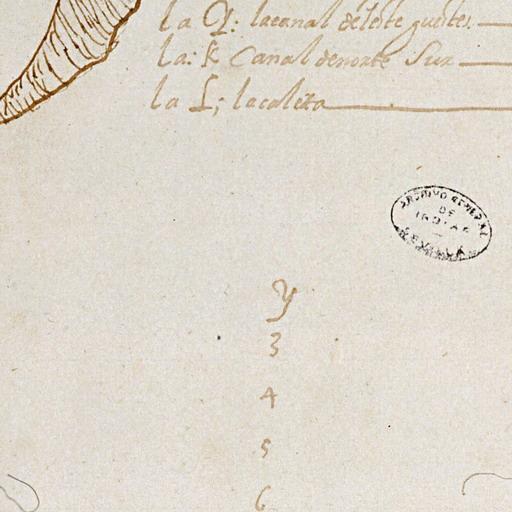 la I: lacanal deleste gueste.
la: k Canal denorte Sur
la L; lacaleta
ARCHIVO GENERAL
DE
INDIAS
SEVILLA
y
3
4
5
6